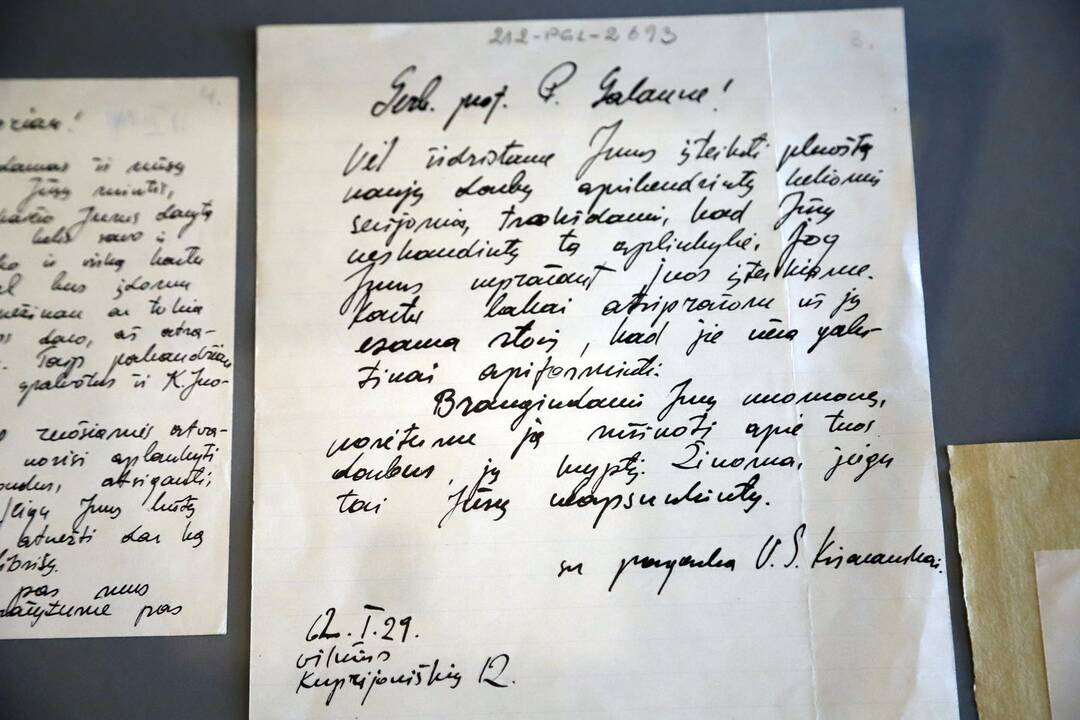 212-PGL-2693
3.
Gerb. prof. P. Galaune!
Vėl išdrįstame Jums įteikti pluoštą
naujų darbų apibendrintų keliomis
serijomis, trokšdami, kad Jūsų
neskandintų ta aplinkybė, jog
Jums neprašant juos įteikiame.
Kartu labai atsiprašome už jų
esamą stovį, kad jie nėra galu-
tinai apiforminti.
Brangindami Jūsų nuomonę,
norėtume ją sužinoti apie tuos
darbus, jų kryptį. Žinoma, jeigu
tai Jūsų neapsunkintų.
su pagarba V. S. Kisarauskai.
62.I.29.
Vilnius
Kuprijoniškių 12.
4.
ir mūsų
Jūsų mintis,
Jums darytų
kelis savo
ir viską kartu
bus įdomu
ar tokia
davo, aš atva-
Taip
spalvotus ir K. Juo-
ruošiamės atva-
norisi aplankyti
Jeigu Jums būtų
atvežti dar ką
pas mus
pas